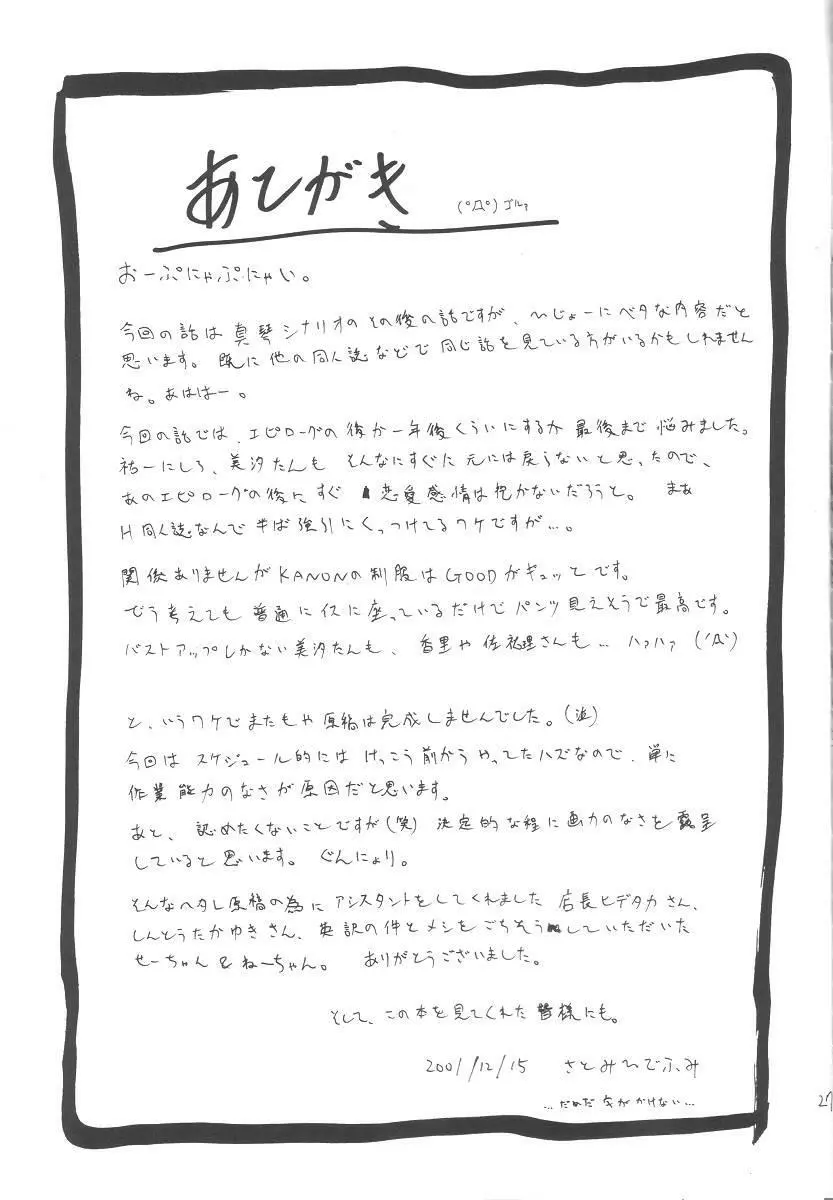 あとがき (ﾟДﾟ)ゴルァ
おーぷにゃぷにゃい。
今回の話は真琴シナリオのその後の話ですが、ひじょーにベタな内容だと
思います。既に他の同人誌などで同じ話を見ている方がいるかもしれません
ね。あははー。
今回の話では、エピローグの後か一年後くらいにするか最後まで悩みました。
祐一にしろ、美汐たんも そんなにすぐに元には戻らないと思ったので、
あのエピローグの後にすぐ 恋愛感情は抱かないだろうと。 まぁ
H同人誌なんで半ば強引にくっつけてるワケですが…。
関係ありませんがKANONの制服はGOODがギュッとです。
どう考えても普通にイスに座っているだけでパンツ見えそうで最高です。
バストアップしかない美汐たんも、香里や佐祐理さんも… ハァハァ (´Д`)
と、いうワケでまたもや原稿は完成しませんでした。(泣)
今回はスケジュール的にはけっこう前からやってたハズなので、単に
作業能力のなさが原因だと思います。
あと、認めたくないことですが(笑) 決定的な程に画力のなさを露呈
していると思います。ぐんにょり。
そんなヘタレ原稿の為にアシスタントをしてくれました 店長ヒデタカさん、
しんとうたかゆきさん、英訳の件とメシをごちそうしていただいた
せーちゃん&ねーちゃん。 ありがとうございました。
そして、この本を見てくれた皆様にも。
2001/12/15 さとみひでふみ
…だめだ 字が かけない…
27